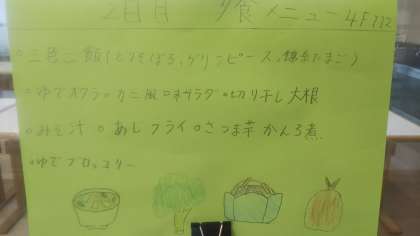 2日目 夕食メニュー 4F
○三色ご飯(とりそぼろ、グリンピース、錦糸たまご)
○ゆでオクラ○カニ風○サラダ○切り干し大根
○みそ汁○あじフライ○さつま芋かんろ煮
○ゆでブロッコリー